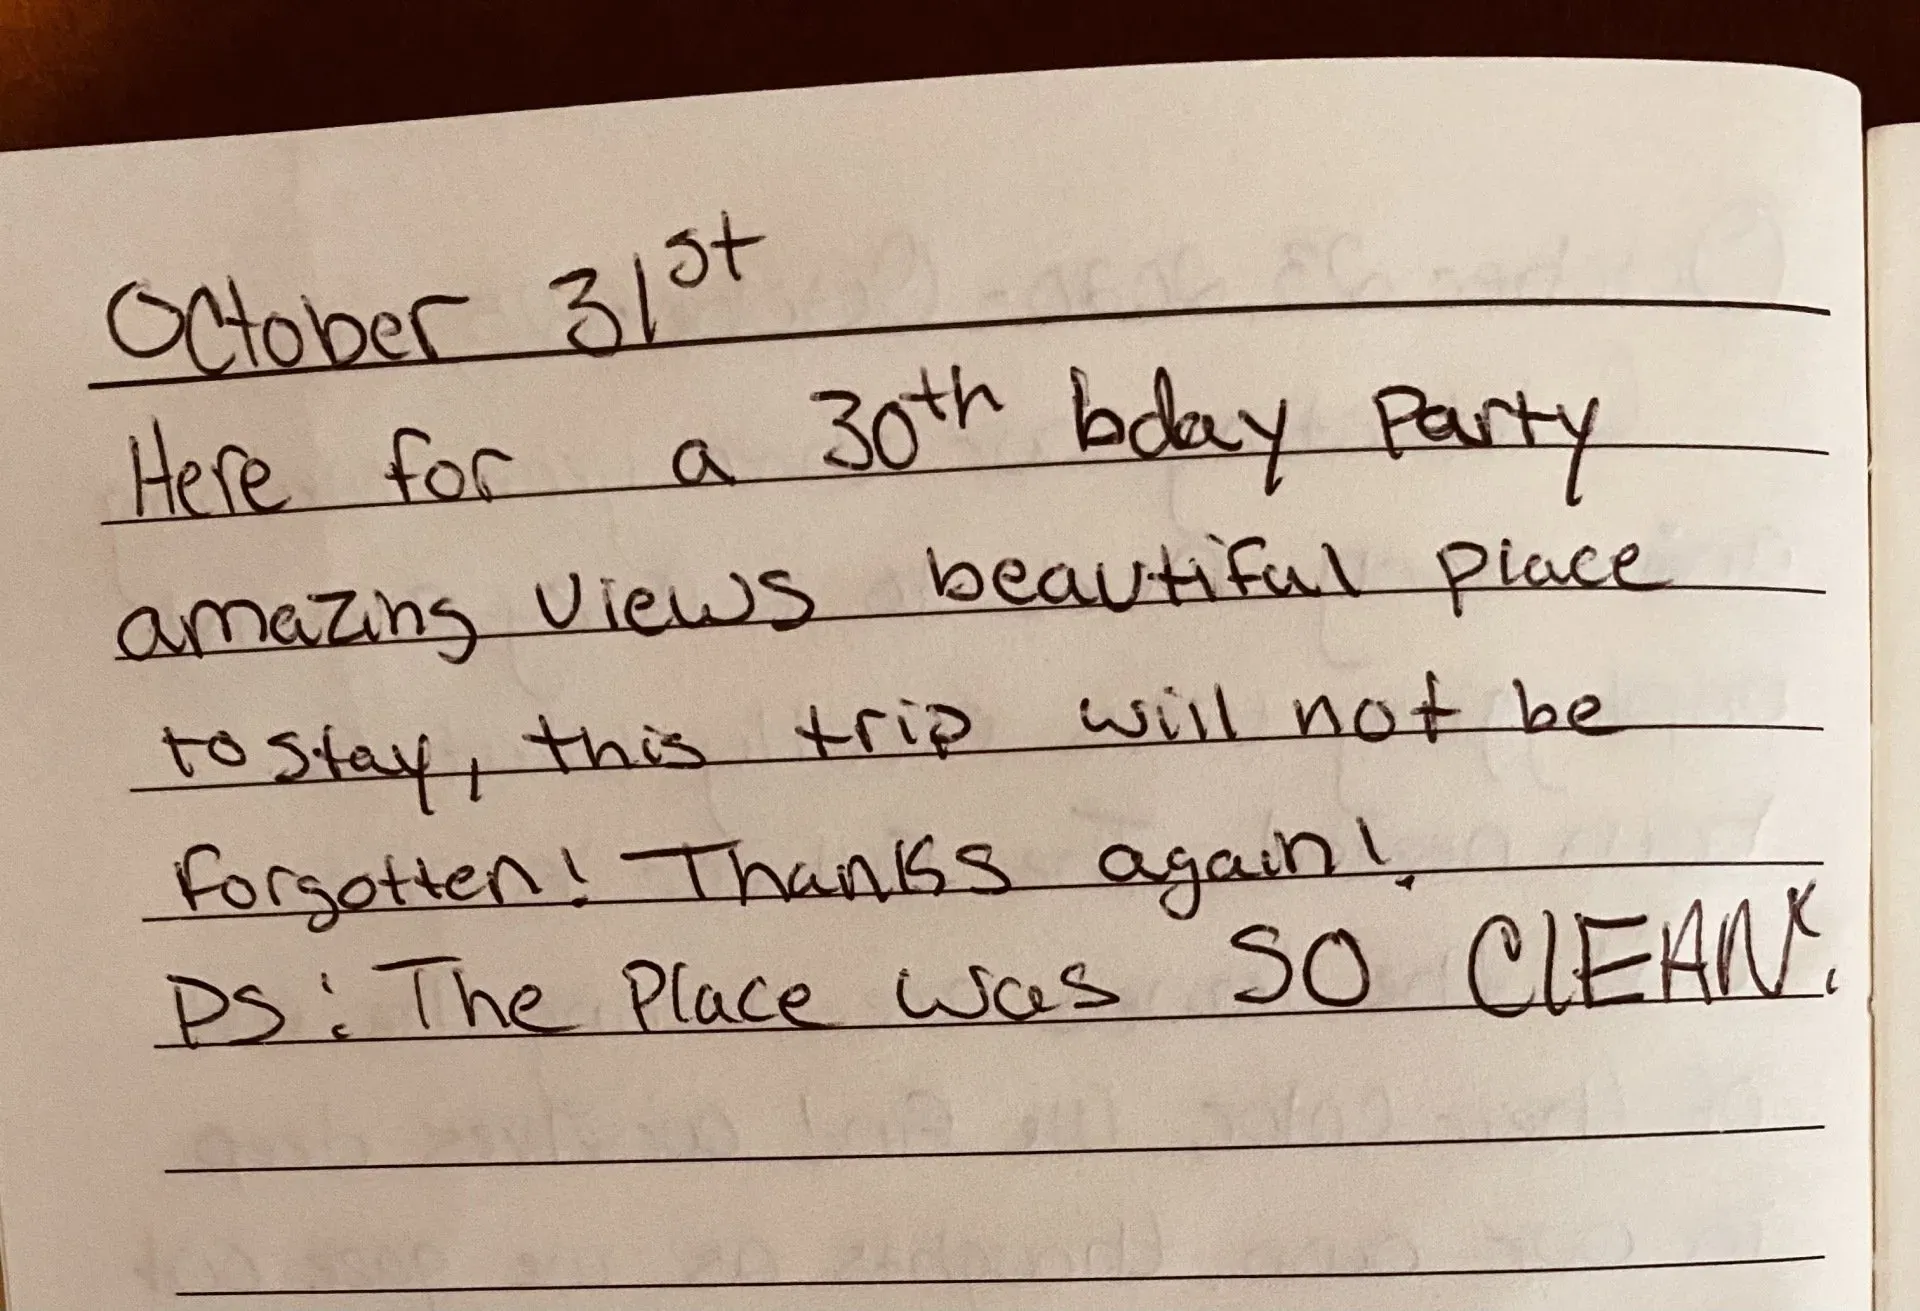 October 31st
Here for a 30th bday Party
amazing views beautiful place
to stay, this trip will not be
forgotten! Thanks again!
PS: The Place was SO CLEAN.